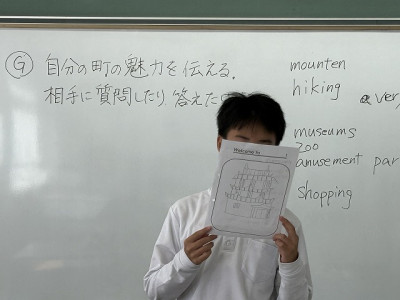 G 自分の町の魅力を伝える.
相手に質問したり 答えた
mounten
hiking
museums
zoo
amusement par
Shopping
Welcome to